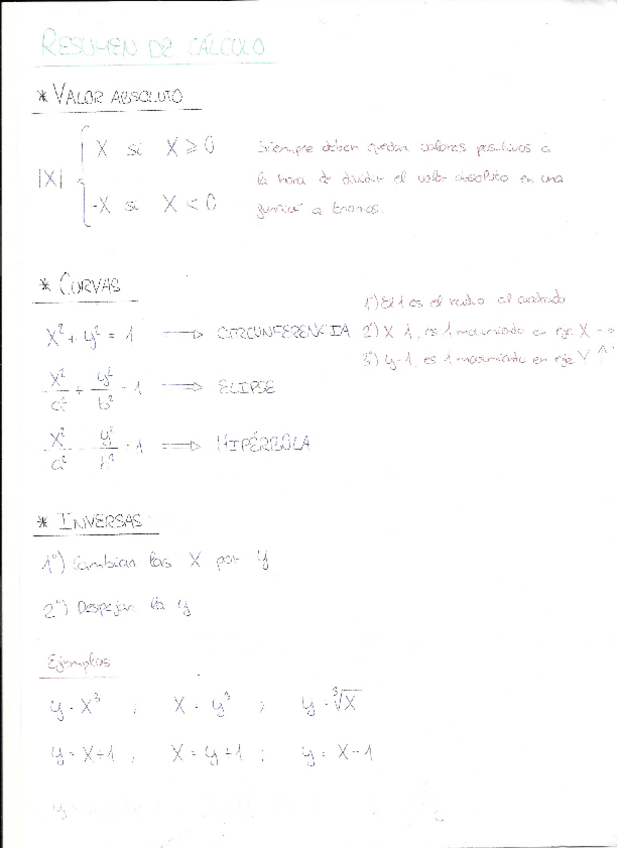 RESUMEN DE CÁLCULO
* VALOR ABSOLUTO
|X| { X si X ≥ 0
-X si X < 0
Siempre deben quedar valores positivos a
la hora de dividir el valor absoluto en una
función a tramos.
* CURVAS
1) El 1 es el radio al cuadrado
X² + y² = 1 ⟹ CIRCUNFERENCIA
2) X 1, es 1 movimiento en eje X →
X²/a² + y²/b² = 1 ⟹ ELIPSE
3) y-1, es 1 movimiento en eje Y ↑
X²/a² - y²/b² = 1 ⟹ HIPÉRBOLA
* INVERSAS
1º) Cambiar las X por y
2º) Despejar la y
Ejemplos
y = X³ ; X = y³ ; y = ∛X
y = X+1 ; X = y+1 ; y = X-1